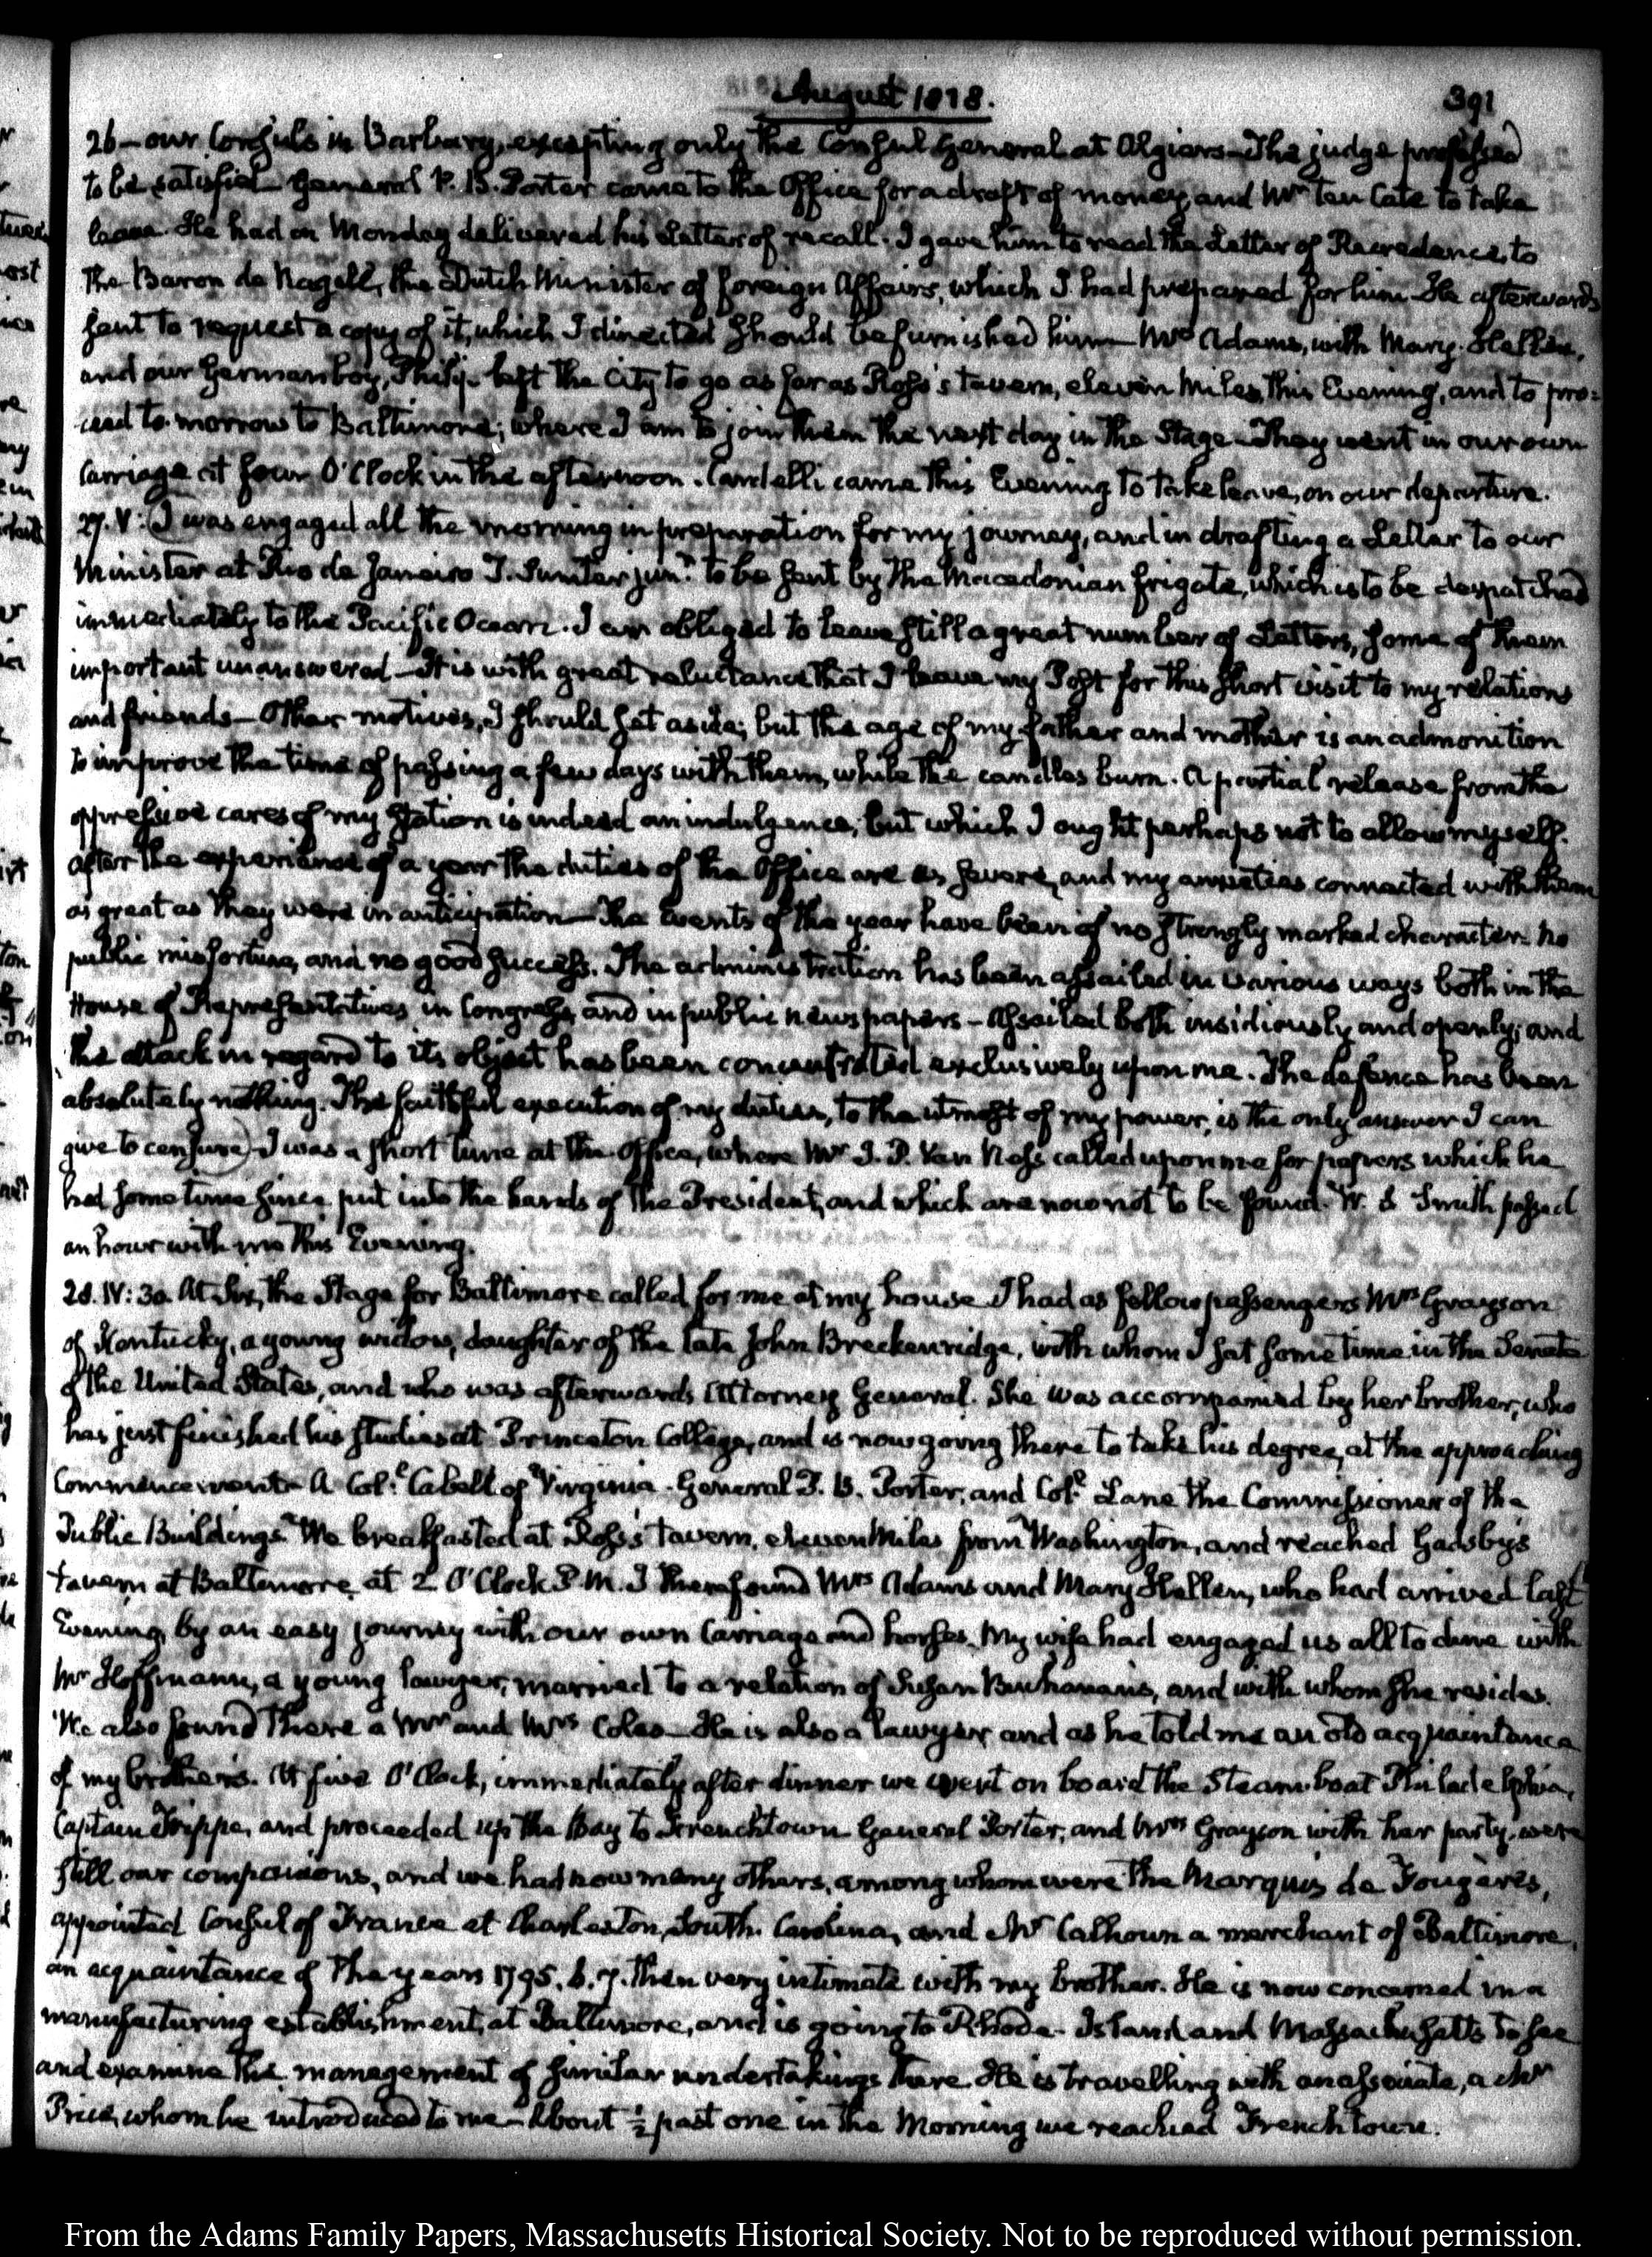 August 1818.
391
26 — our Consuls in Barbary, excepting only the Consul General at Algiers — The judge professed
to be satisfied — General P. B. Porter came to the Office for a draft of money, and Mr Ten Cate to take
leave. He had on Monday delivered his Letter of recall. I gave him to read the Letter of Recredence, to
the Baron de Nagell, the Dutch Minister of foreign Affairs, which I had prepared for him — He afterwards
sent to request a copy of it, which I directed should be furnished him — Mrs Adams, with Mary Hellen,
and our German boy, Philip left the City to go as far as Ross's tavern, eleven Miles, this Evening, and to pro=
ceed to-morrow to Baltimore; where I am to join them the next day in the Stage — They went in our own
Carriage at four O'Clock in the afternoon. Cardelli came this Evening to take leave, on our departure.
27. V: I was engaged all the morning in preparation for my journey, and in drafting a Letter to our
Minister at Rio de Janeiro T. Sumter junr. to be sent by the Macedonian frigate, which is to be despatched
immediately to the Pacific Ocean. I am obliged to leave still a great number of Letters, some of them
important unanswered — It is with great reluctance that I leave my Post for this short visit to my relations
and friends — Other motives, I should set aside; but the age of my father and mother is an admonition
to improve the time of passing a few days with them, while the candles burn. A partial release from the
oppressive cares of my Station is indeed an indulgence, but which I ought perhaps not to allow myself.
After the experience of a year the duties of the Office are as severe, and my anxieties connected with them
as great as they were in anticipation — The Events of the year have been of no strongly marked character. No
public misfortune, and no good success. The administration has been assailed in various ways both in the
House of Representatives in Congress, and in public newspapers — Assailed both insidiously and openly; and
the attack in regard to its object has been concentrated exclusively upon me. The defence has been
absolutely nothing. The faithful execution of my duties, to the utmost of my power, is the only answer I can
give to censure) — I was a short time at the Office, where Mr J. P. Van Ness called upon me for papers which he
had some time since put into the hands of the President, and which are now not to be found. W. S. Smith passed
an hour with me this Evening.
28. IV: 30. At six, the Stage for Baltimore called for me at my house I had as fellow passengers Mrs Grayson
of Kentucky, a young widow, daughter of the late John Breckenridge, with whom I sat some time in the Senate
of the United States, and who was afterwards Attorney General. She was accompanied by her brother, who
has just finished his studies at Princeton College, and is now going there to take his degree, at the approaching
Commencement — A Coll. Cabell of Virginia — General P. B. Porter, and Coll. Lane the Commissioner of the
Public Buildings — We breakfasted at Ross's tavern, eleven Miles from Washington, and reached Gadsby's
tavern at Baltimore at 2 O'Clock P.M. I there found Mrs Adams and Mary Hellen, who had arrived last
Evening, by an easy journey with our own Carriage and horses. My wife had engaged us all to dine with
Mr Hoffmann, a young lawyer, married to a relation of Susan Buchanan's, and with whom she resides.
We also found there a Mr and Mrs Coles — He is also a lawyer and as he told me an old acquaintance
of my brother's. At five O'Clock, immediately after dinner we went on board the Steam-boat Philadelphia,
Captain Trippe, and proceeded up the Bay to Frenchtown — General Porter, and Mrs Grayson with her party, were
still our companions, and we had now many others, among whom were the Marquis de Fougères,
appointed Consul of France at Charleston, South-Carolina, and Mr Calhoun a merchant of Baltimore,
an acquaintance of the years 1795. 6. 7. then very intimate with my brother. He is now concerned in a
manufacturing establishment, at Baltimore, and is going to Rhode-Island and Massachusetts to see
and examine the management of similar undertakings there. He is travelling with an associate, a Mr
Price, whom he introduced to me — About ½ past one in the Morning we reached Frenchtown.
From the Adams Family Papers, Massachusetts Historical Society. Not to be reproduced without permission.